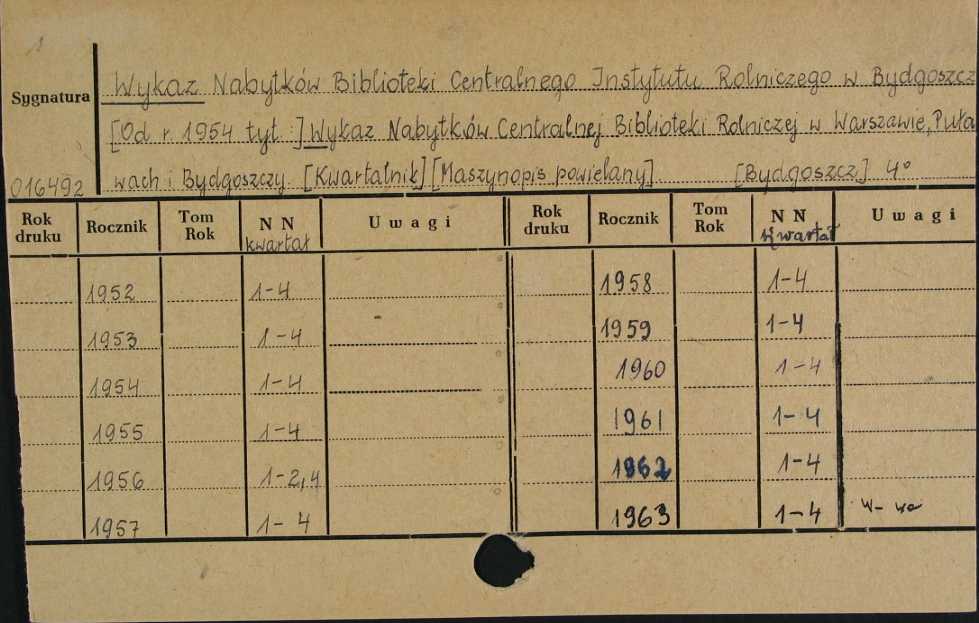 1
Sygnatura
Wykaz Nabytków Biblioteki Centralnego Instytutu Rolniczego w Bydgoszcz
[Od r. 1954 tyt.:] Wykaz Nabytków Centralnej Biblioteki Rolniczej w Warszawie, Puła
016492 wach i Bydgoszczy. [Kwartalnik] [Maszynopis powielany]. [Bydgoszcz] 4°
Rok druku Rocznik Tom Rok NN kwartał Uwagi Rok druku Rocznik Tom Rok NN kwartał Uwagi
1952 1-4 1958 1-4
1953 1-4 1959 1-4
1954 1-4 1960 1-4
1955 1-4 1961 1-4
1956 1-2,4 1962 1-4
1957 1-4 1963 1-4 W-wa